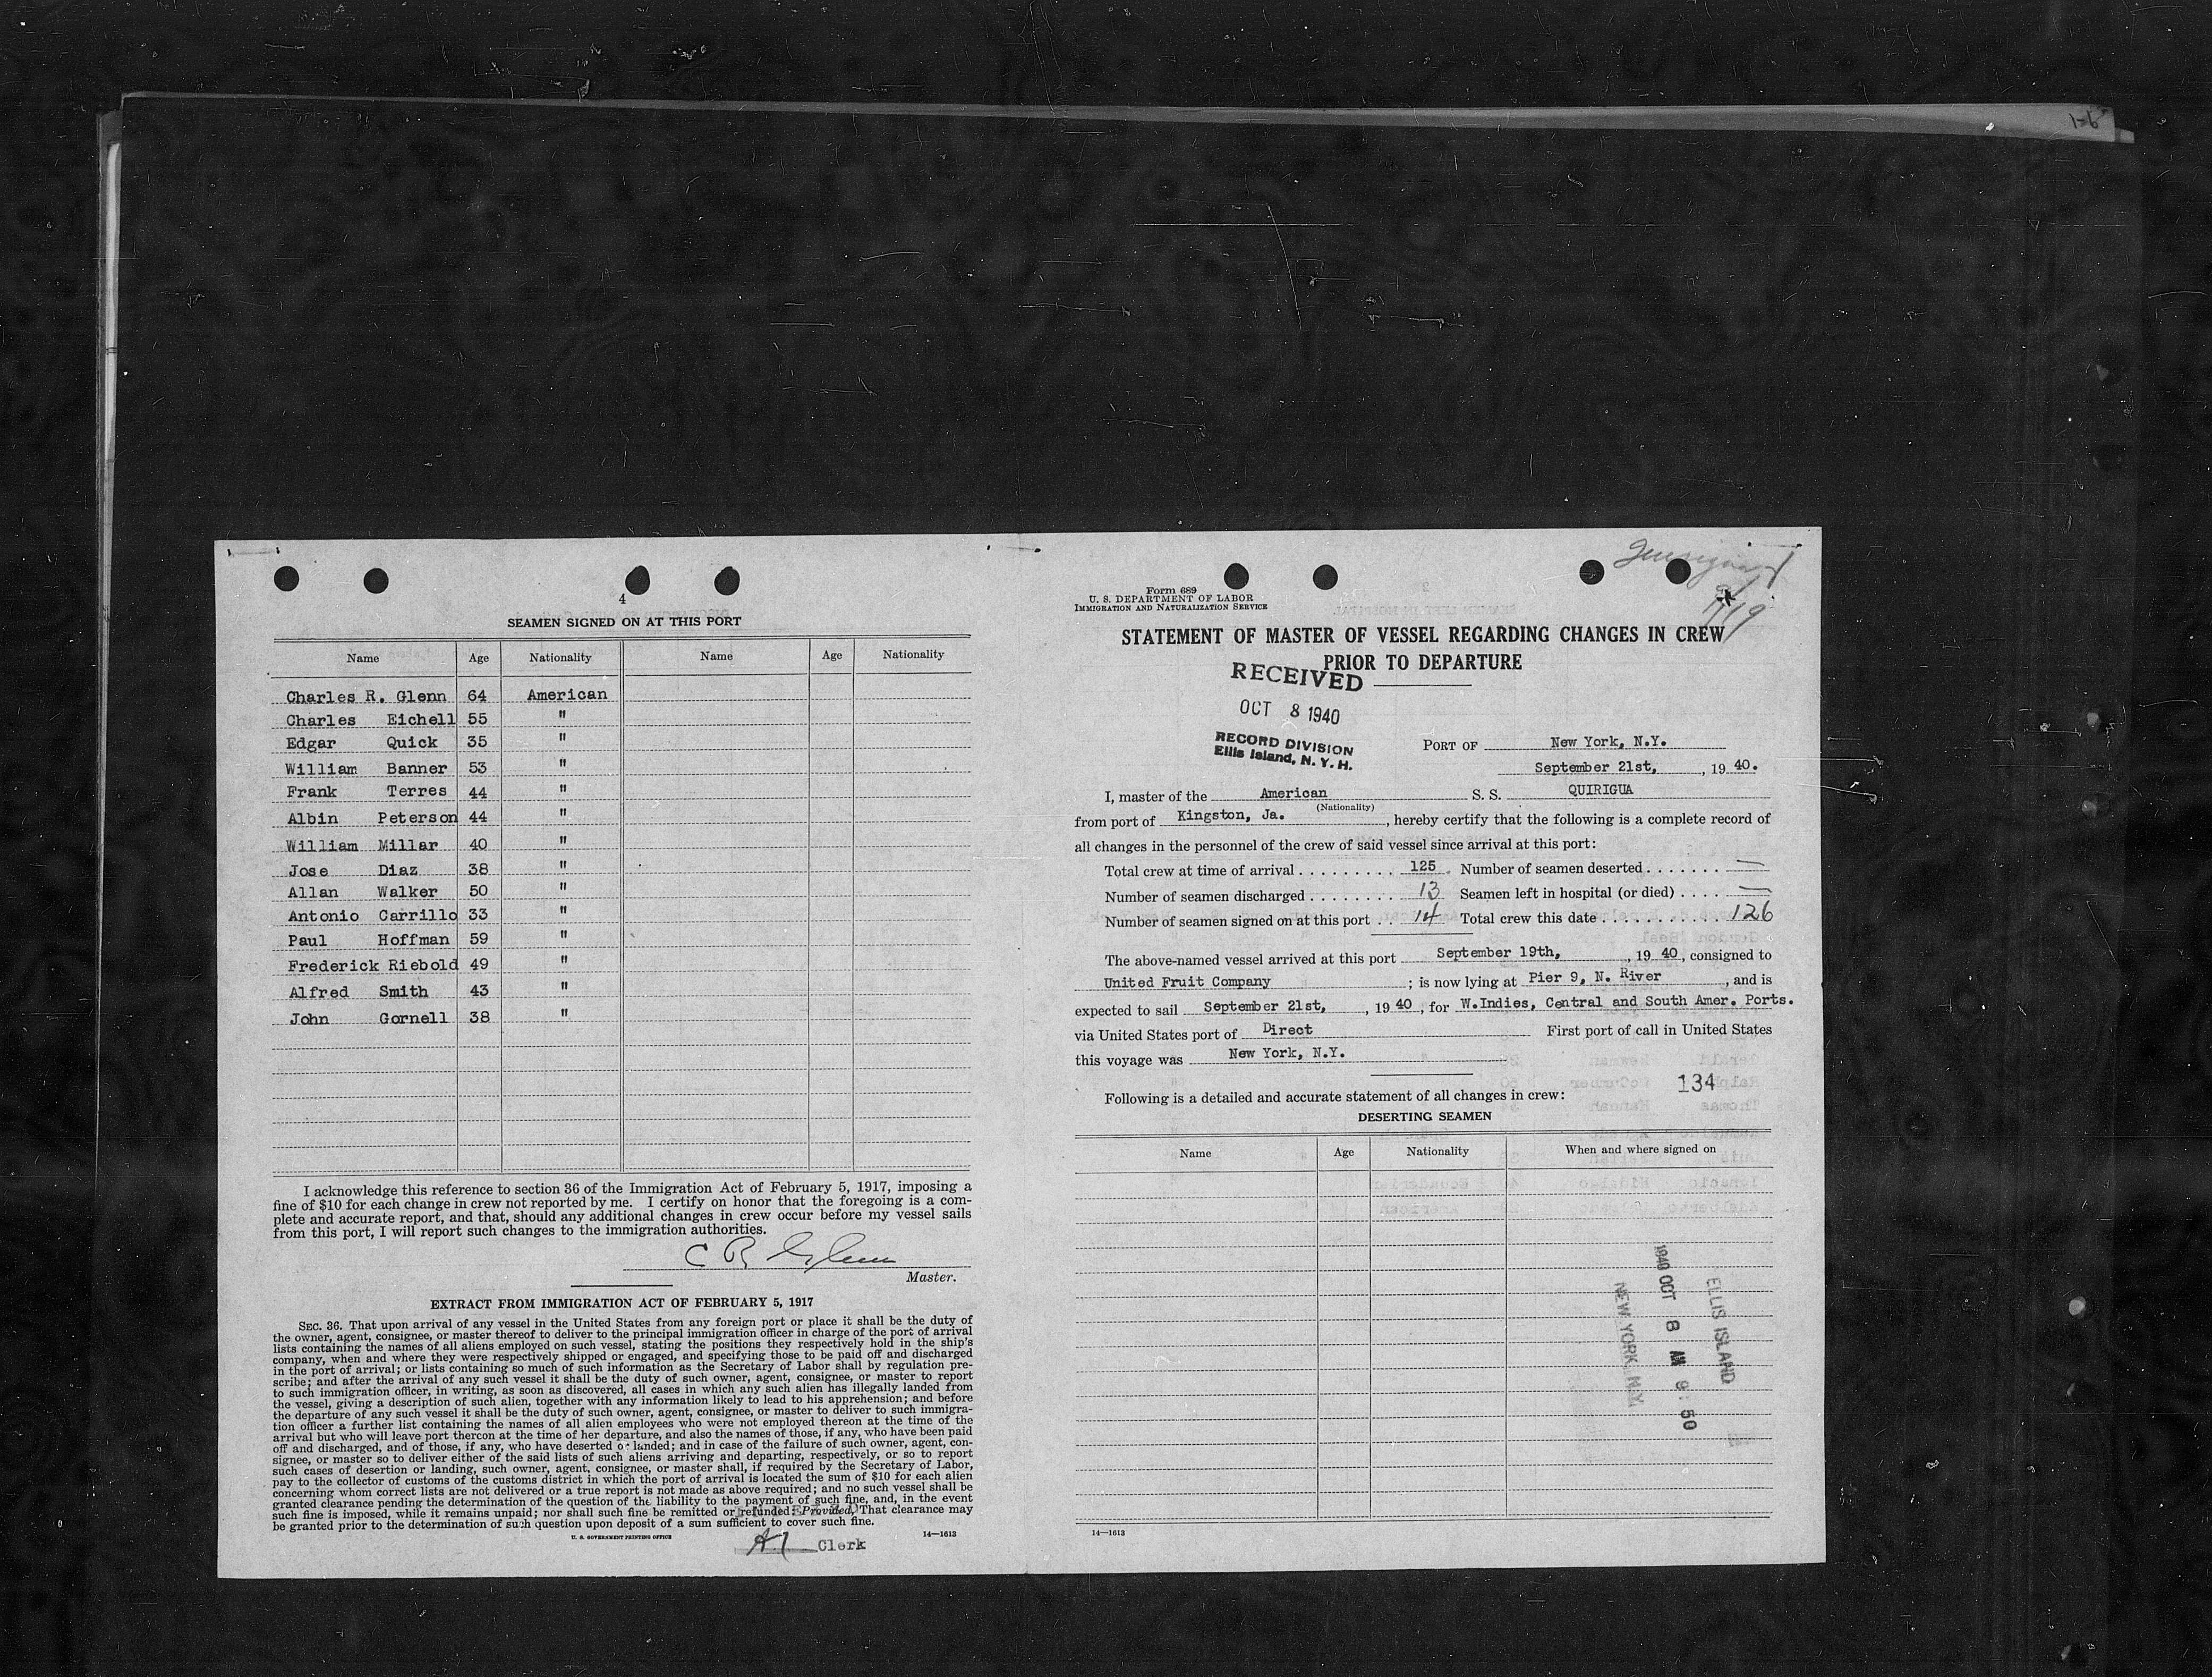 1-6
4
SEAMEN SIGNED ON AT THIS PORT
Name Age Nationality Name Age Nationality
Charles R. Glenn 64 American
Charles Eichell 55 "
Edgar Quick 35 "
William Banner 53 "
Frank Terres 44 "
Albin Peterson 44 "
William Millar 40 "
Jose Diaz 38 "
Allan Walker 50 "
Antonio Carrillo 33 "
Paul Hoffman 59 "
Frederick Riebold 49 "
Alfred Smith 43 "
John Gornell 38 "
I acknowledge this reference to section 36 of the Immigration Act of February 5, 1917, imposing a
fine of $10 for each change in crew not reported by me. I certify on honor that the foregoing is a com-
plete and accurate report, and that, should any additional changes in crew occur before my vessel sails
from this port, I will report such changes to the immigration authorities.
C R Glenn
Master.
EXTRACT FROM IMMIGRATION ACT OF FEBRUARY 5, 1917
SEC. 36. That upon arrival of any vessel in the United States from any foreign port or place it shall be the duty of
the owner, agent, consignee, or master thereof to deliver to the principal immigration officer in charge of the port of arrival
lists containing the names of all aliens employed on such vessel, stating the positions they respectively hold in the ship's
company, when and where they were respectively shipped or engaged, and specifying those to be paid off and discharged
in the port of arrival; or lists containing so much of such information as the Secretary of Labor shall by regulation pre-
scribe; and after the arrival of any such vessel it shall be the duty of such owner, agent, consignee, or master to report
to such immigration officer, in writing, as soon as discovered, all cases in which any such alien has illegally landed from
the vessel, giving a description of such alien, together with any information likely to lead to his apprehension; and before
the departure of any such vessel it shall be the duty of such owner, agent, consignee, or master to deliver to such immigra-
tion officer a further list containing the names of all alien employees who were not employed thereon at the time of the
arrival but who will leave port thercon at the time of her departure, and also the names of those, if any, who have been paid
off and discharged, and of those, if any, who have deserted or landed; and in case of the failure of such owner, agent, con-
signee, or master so to deliver either of the said lists of such aliens arriving and departing, respectively, or so to report
such cases of desertion or landing, such owner, agent, consignee, or master shall, if required by the Secretary of Labor,
pay to the collector of customs of the customs district in which the port of arrival is located the sum of $10 for each alien
concerning whom correct lists are not delivered or a true report is not made as above required; and no such vessel shall be
granted clearance pending the determination of the question of the liability to the payment of such fine, and, in the event
such fine is imposed, while it remains unpaid; nor shall such fine be remitted or refunded: Provided, That clearance may
be granted prior to the determination of such question upon deposit of a sum sufficient to cover such fine.
U. S. GOVERNMENT PRINTING OFFICE 14—1613
Clerk
Form 689
U. S. DEPARTMENT OF LABOR
IMMIGRATION AND NATURALIZATION SERVICE
STATEMENT OF MASTER OF VESSEL REGARDING CHANGES IN CREW
PRIOR TO DEPARTURE
RECEIVED
OCT 8 1940
RECORD DIVISION
Ellis Island, N. Y. H.
PORT OF New York, N.Y.
September 21st, , 19 40.
I, master of the American S. S. QUIRIGUA
(Nationality)
from port of Kingston, Ja. , hereby certify that the following is a complete record of
all changes in the personnel of the crew of said vessel since arrival at this port:
Total crew at time of arrival . . . . . . . . . 125 Number of seamen deserted . . . . . . . —
Number of seamen discharged . . . . . . . . 13 Seamen left in hospital (or died) . . . . —
Number of seamen signed on at this port . . 14 Total crew this date . . . . . . . . . . . 126
The above-named vessel arrived at this port September 19th, , 19 40, consigned to
United Fruit Company ; is now lying at Pier 9, N. River , and is
expected to sail September 21st, , 19 40, for W.Indies, Central and South Amer. Ports.
via United States port of Direct First port of call in United States
this voyage was New York, N.Y.
134
Following is a detailed and accurate statement of all changes in crew:
DESERTING SEAMEN
Name Age Nationality When and where signed on
ELLIS ISLAND
1940 OCT 8 AM 9:50
NEW YORK, N.Y.
14—1613